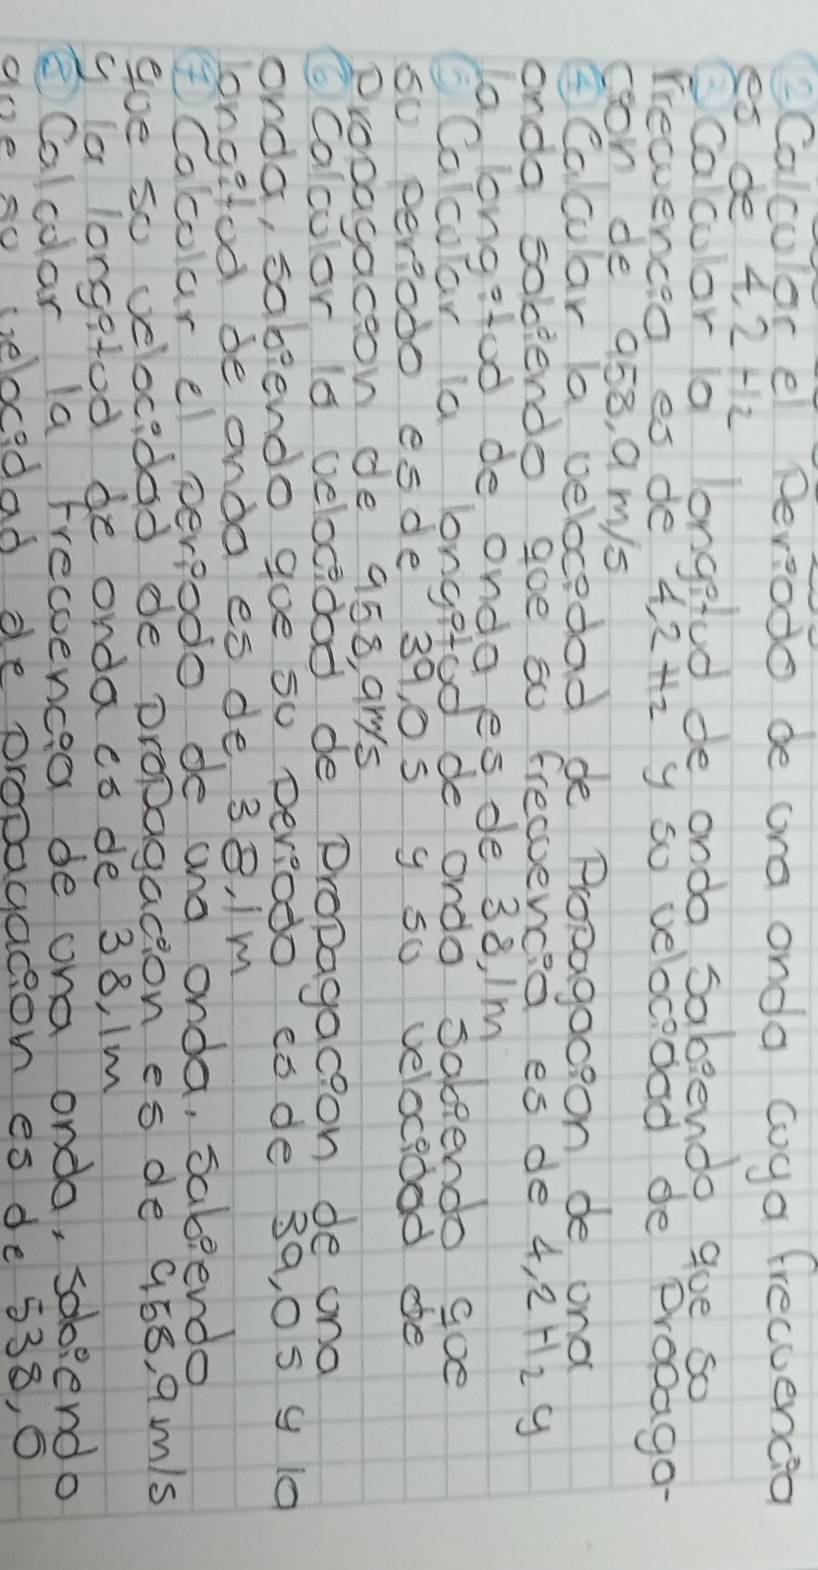 ② Calcular el Periodo de una onda cuya frecuencia
es de 4,2 Hz
③ Calcular la longitud de onda sabiendo que su
frecuencia es de 4,2 Hz y su velocidad de Propaga-
cion de 958,9 m/s
④ Calcular la velocidad de Propagacion de una
onda sabiendo que su frecuencia es de 4,2 Hz y
la longitud de onda es de 38,1m
⑤ Calcular la longitud de onda sabiendo que
su periodo es de 39,0s y su velocidad de
Propagacion de 958,9m/s
⑥ Calcular la velocidad de Propagacion de una
onda, sabiendo que su periodo es de 39,0s y la
longitud de onda es de 38,1m
⑦ Calcular el periodo de una onda, sabiendo
que su velocidad de propagacion es de 958,9 m/s
y la longitud de onda es de 38,1m
Calcular la frecuencia de una onda, sabiendo
que su velocidad de propagacion es de 538,6